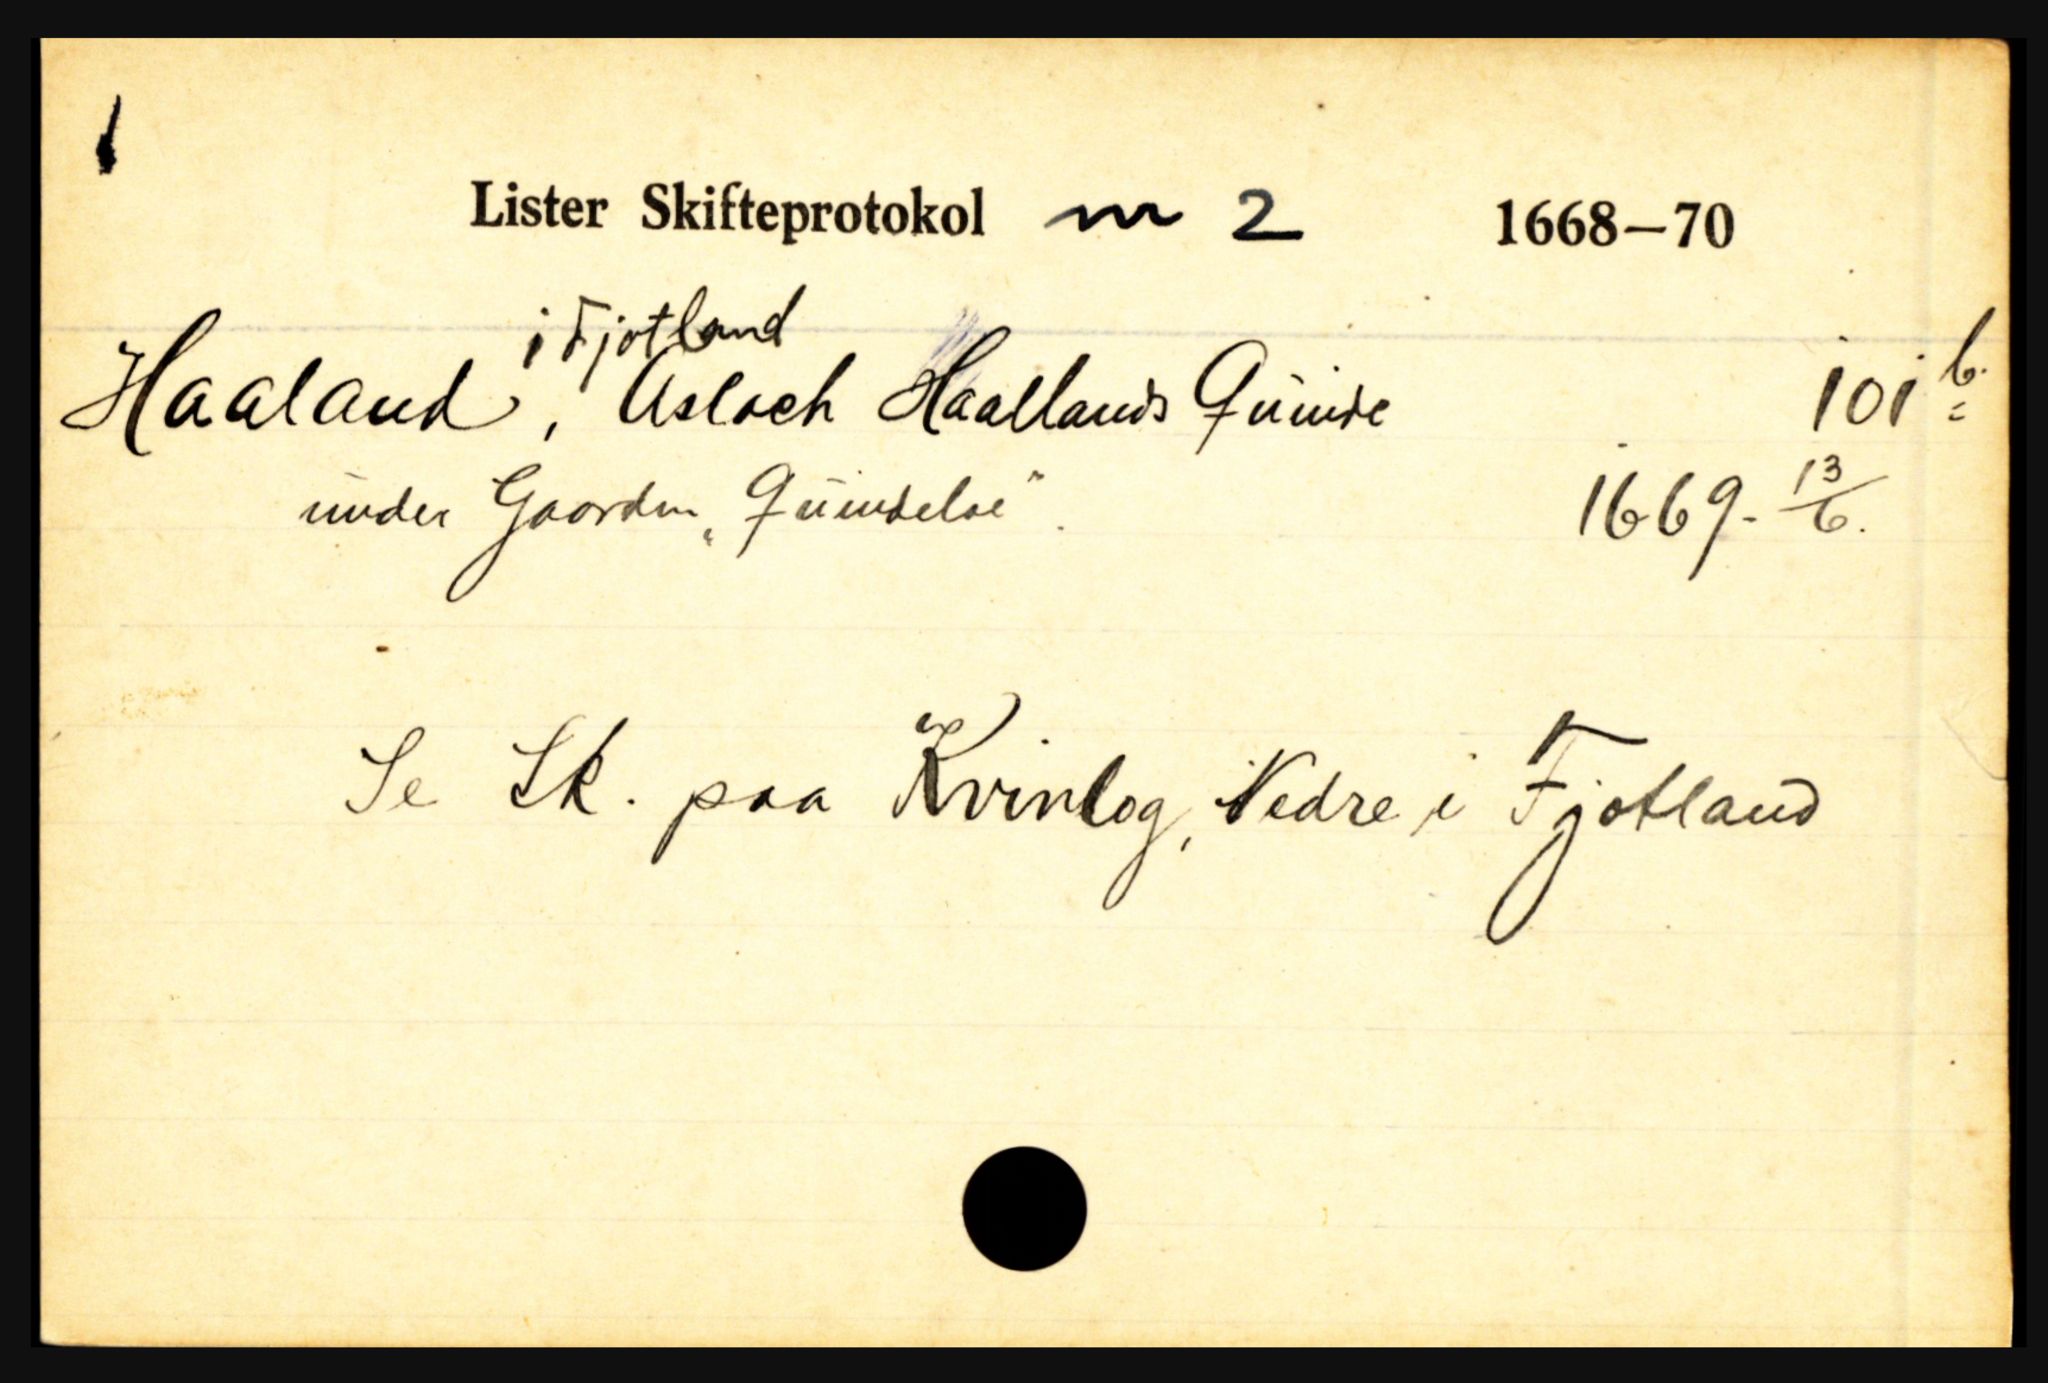 Lister Skifteprotokol nr 2 1668—70
i Fjotland
Haaland, Asloch Haallands Quinde 101 b.
under Gaarden „Quindeloe" 1669 - 13/6.
Se Sk. paa Kvinlog, Nedre i Fjotland